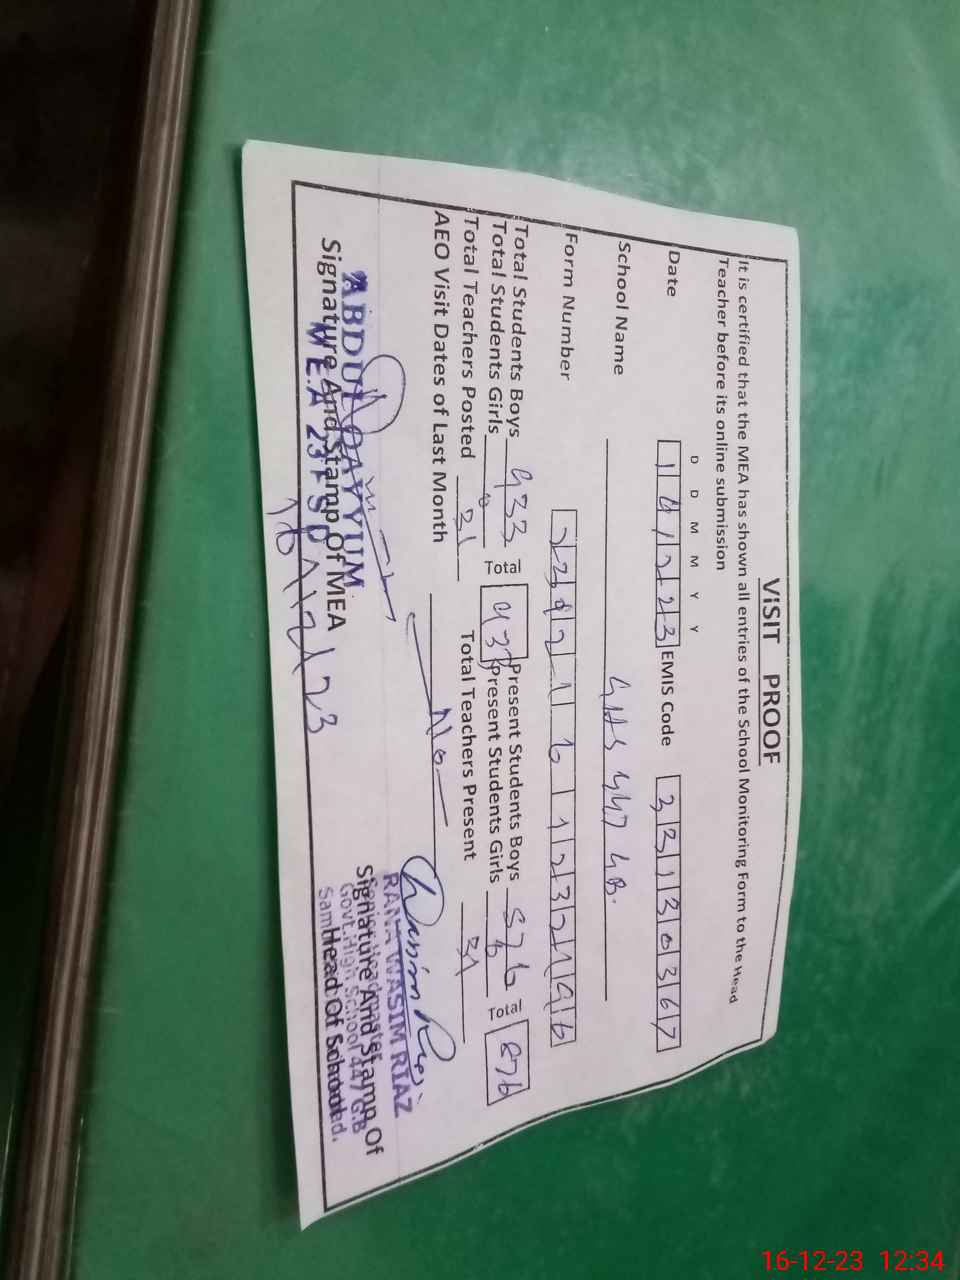 ViSIT PROOF
It is certified that the MEA has shown all entries of the School Monitoring Form to the Head
Teacher before its online submission
D D M M Y Y
Date 161223 EMIS Code 33130367
School Name GHS 447 GB.
Form Number
Total Students Boys 933 Total 933 Present Students Boys 876 Total 876
Total Students Girls 0 Present Students Girls 0
Total Teachers Posted 31 Total Teachers Present 31
AEO Visit Dates of Last Month No
ABDUL QAYYUM
M E.A 23 FSD
Signature And Stamp Of MEA
16/12/23
RANA WASIM RIAZ
Senior Headmaster
Govt. High School 447 G.B
Signature And Stamp Of
Head Of School
16-12-23 12:34